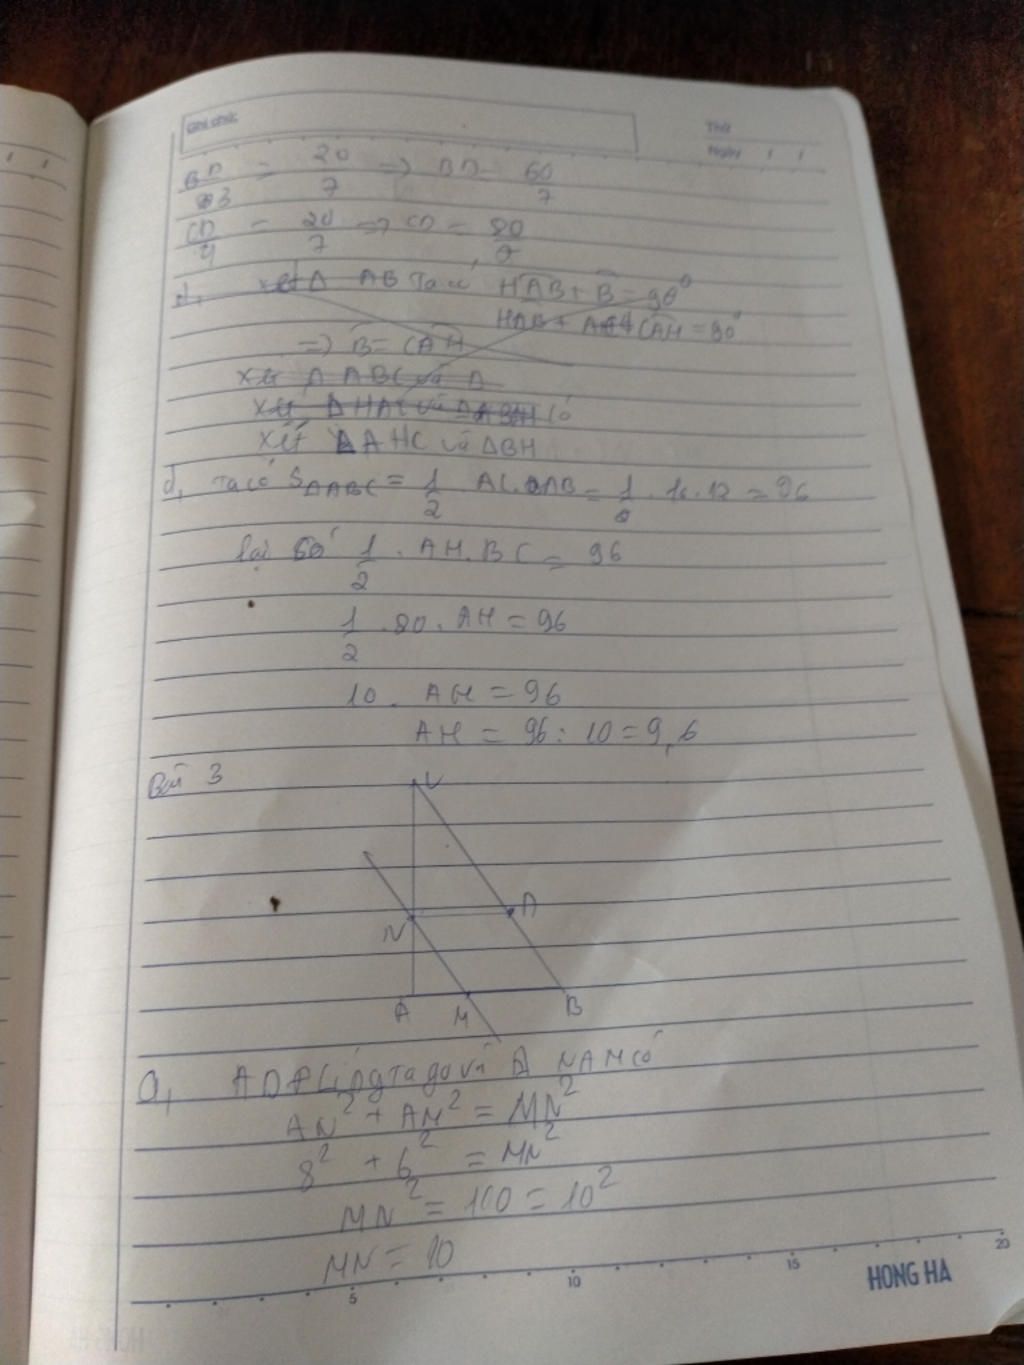 Ghi chú:
Thứ
Ngày / /
BD/3 = 20/7 => BD = 60/7
CD/4 = 20/7 => CD = 80/7
d, xét Δ AB Ta có HAB + B = 90°
HAB + CAH = 90°
=> B = CAH
Xét Δ ABC và Δ
Xét Δ HAC và Δ có
Xét ΔAHC và ΔBH
d, Ta có SΔABC = 1/2 . AC . AB = 1/2 . 16 . 12 = 96
lại có 1/2 . AH . BC = 96
1/2 . 20 . AH = 96
10 . AH = 96
AH = 96 : 10 = 9,6
Bài 3
C
D
N
A M B
a, ADĐL pygtago vì Δ NAM có
AN² + AM² = MN²
8² + 6² = MN²
MN² = 100 = 10²
MN = 10
5 10 15 20
HONG HA